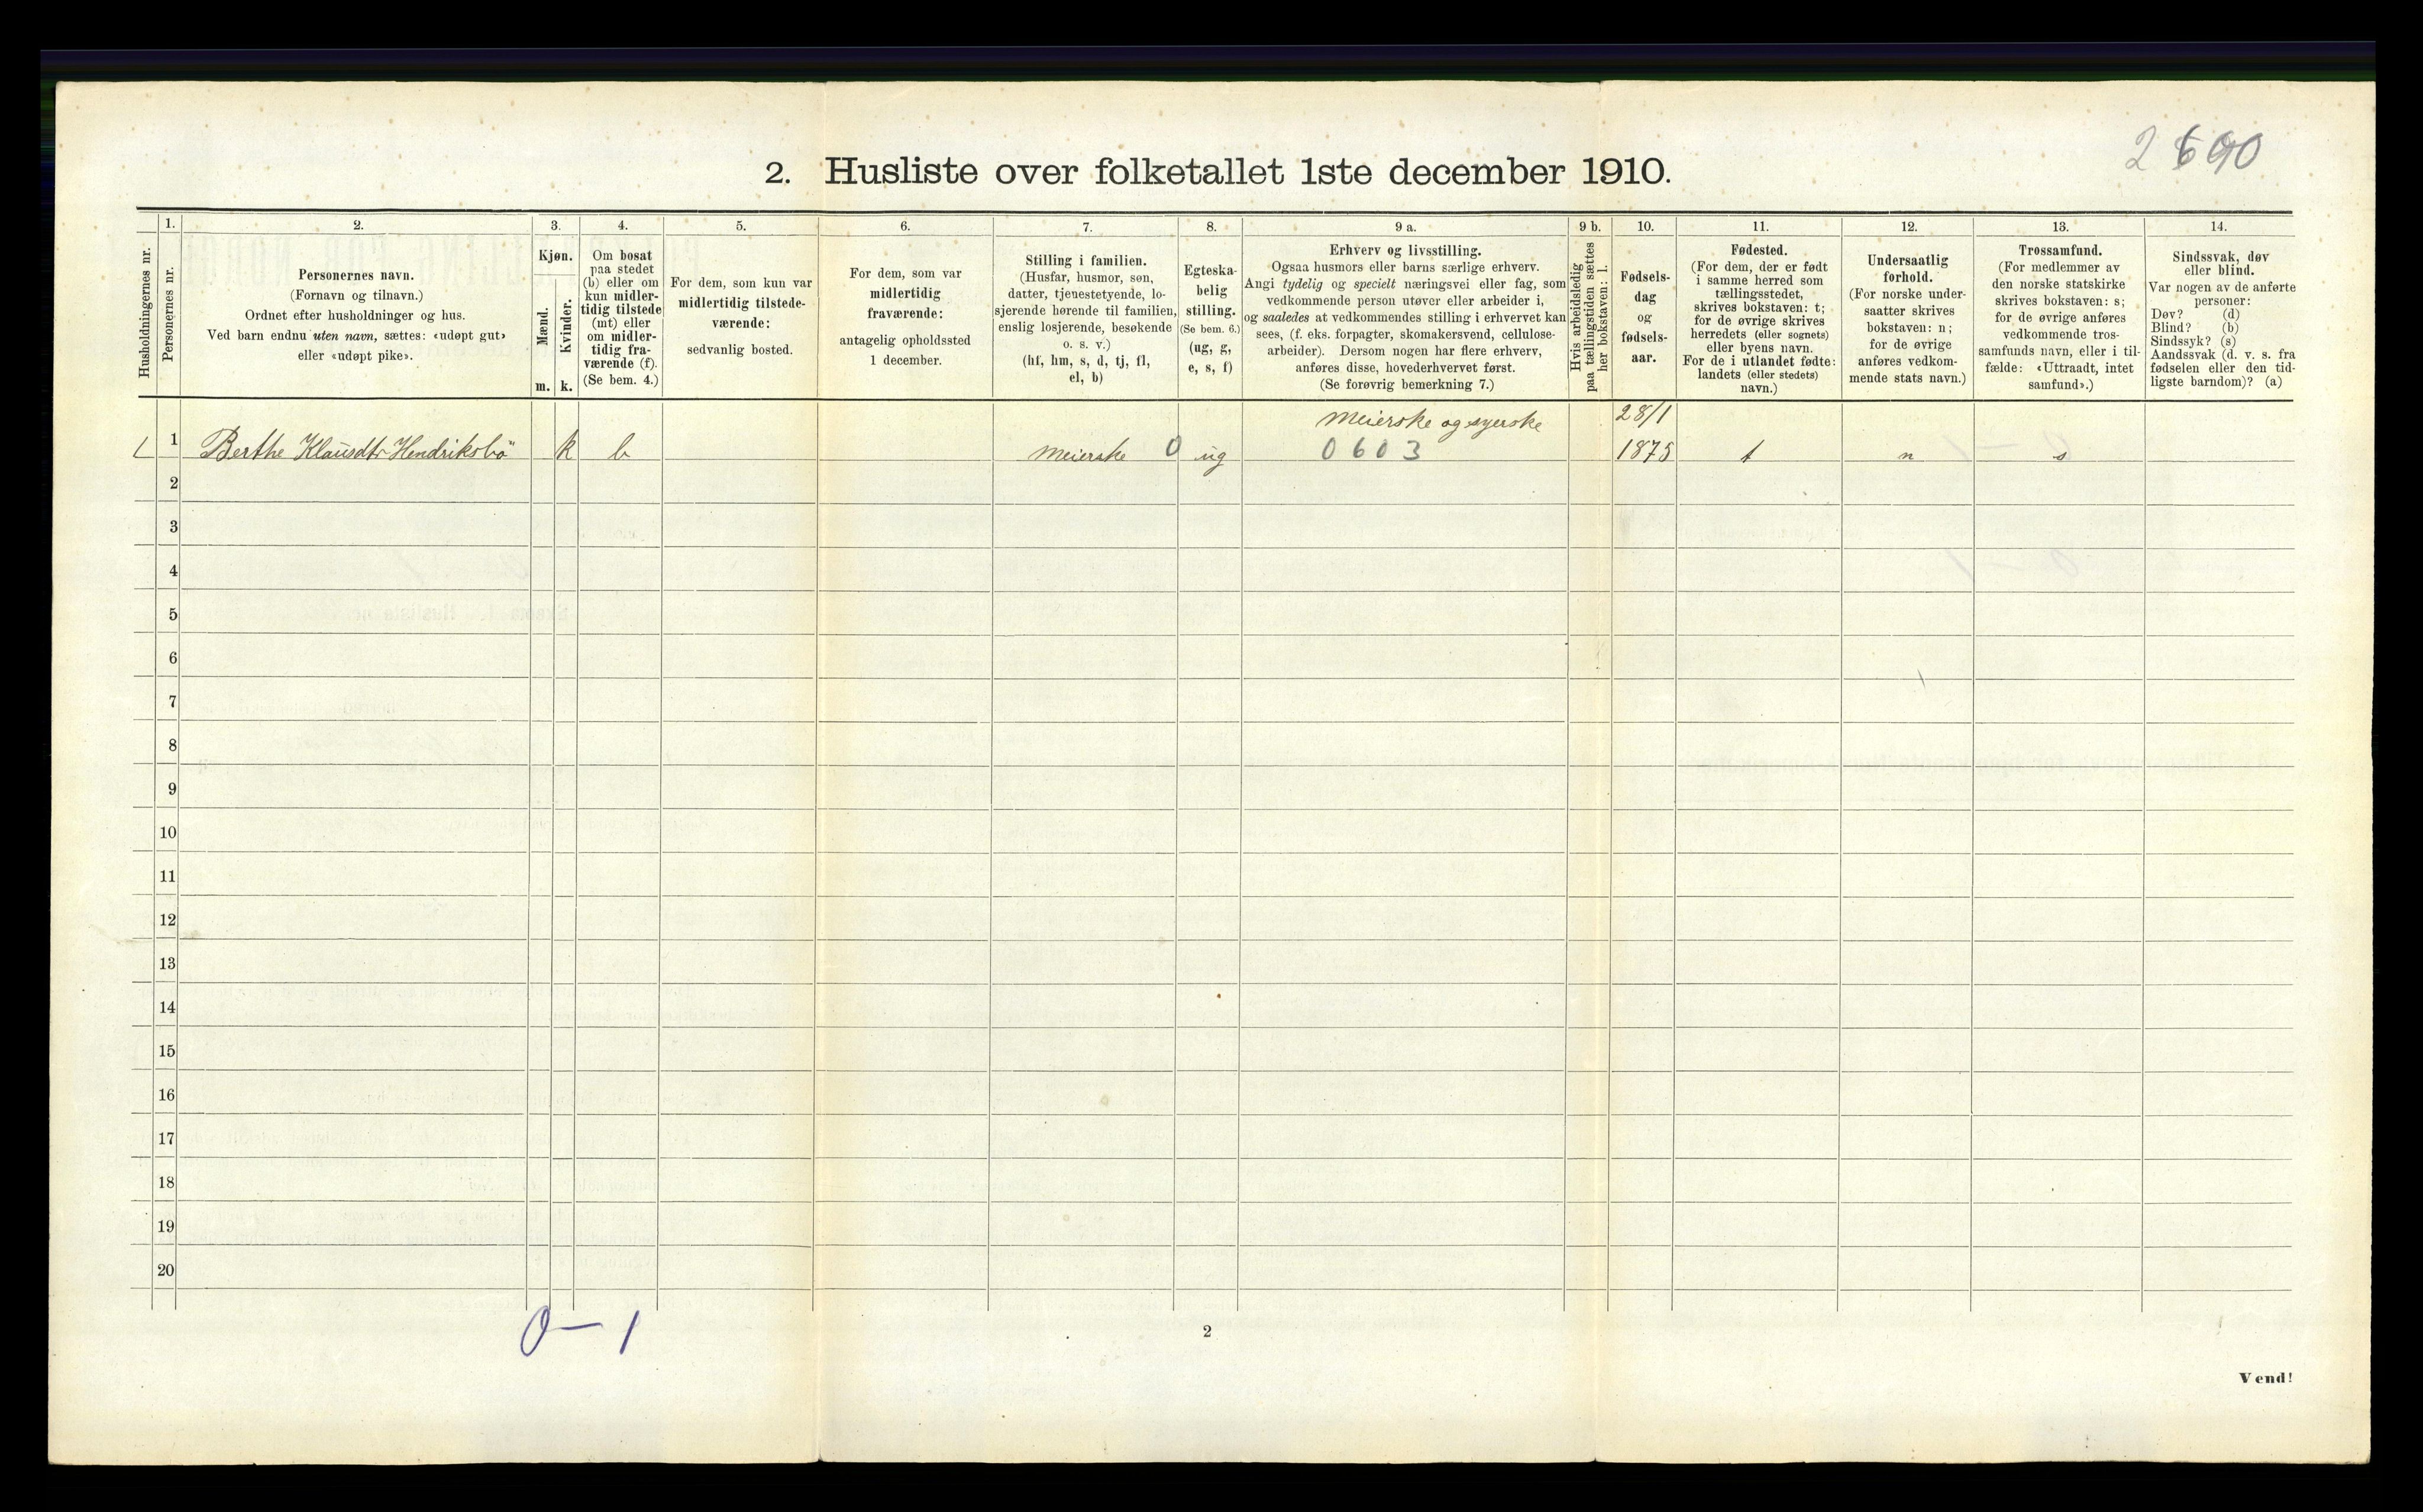 2690
2. Husliste over folketallet 1ste december 1910.
Husholdningernes nr.
1.
Personernes nr.
2.
Personernes navn.
(Fornavn og tilnavn.)
Ordnet efter husholdninger og hus.
Ved barn endnu uten navn, sættes: «udøpt gut»
eller «udøpt pike».
3.
Kjøn.
Mænd.
m.
Kvinder.
k.
4.
Om bosat
paa stedet
(b) eller om
kun midler-
tidig tilstede
(mt) eller
om midler-
tidig fra-
værende (f).
(Se bem. 4.)
5.
For dem, som kun var
midlertidig tilstede-
værende:
sedvanlig bosted.
6.
For dem, som var
midlertidig
fraværende:
antagelig opholdssted
1 december.
7.
Stilling i familien.
(Husfar, husmor, søn,
datter, tjenestetyende, lo-
sjerende hørende til familien,
enslig losjerende, besøkende
o. s. v.)
(hf, hm, s, d, tj, fl,
el, b)
8.
Egteska-
belig
stilling.
(Se bem. 6.)
(ug, g,
e, s, f)
9 a.
Erhverv og livsstilling.
Ogsaa husmors eller barns særlige erhverv.
Angi tydelig og specielt næringsvei eller fag, som
vedkommende person utøver eller arbeider i,
og saaledes at vedkommendes stilling i erhvervet kan
sees, (f. eks. forpagter, skomakersvend, cellulose-
arbeider). Dersom nogen har flere erhverv,
anføres disse, hovederhvervet først.
(Se forøvrig bemerkning 7.)
9 b.
Hvis arbeidsledig
paa tællingstiden sættes
her bokstaven: l.
10.
Fødsels-
dag
og
fødsels-
aar.
11.
Fødested.
(For dem, der er født
i samme herred som
tællingsstedet,
skrives bokstaven: t;
for de øvrige skrives
herredets (eller sognets)
eller byens navn.
For de i utlandet fødte:
landets (eller stedets)
navn.)
12.
Undersaatlig
forhold.
(For norske under-
saatter skrives
bokstaven: n;
for de øvrige
anføres vedkom-
mende stats navn.)
13.
Trossamfund.
(For medlemmer av
den norske statskirke
skrives bokstaven: s;
for de øvrige anføres
vedkommende tros-
samfunds navn, eller i til-
fælde: «Uttraadt, intet
samfund».)
14.
Sindssvak, døv
eller blind.
Var nogen av de anførte
personer:
Døv? (d)
Blind? (b)
Sindssyk? (s)
Aandssvak (d. v. s. fra
fødselen eller den tid-
ligste barndom)? (a)
Meierske og syerske 28/1
1 1 Berthe Klausdtr Hendriksbö k b Meierske 0 ug 0603 1875 t n s
2
3
4
5
6
7
8
9
10
11
12
13
14
15
16
17
18
19
20
0 — 1
2
Vend!